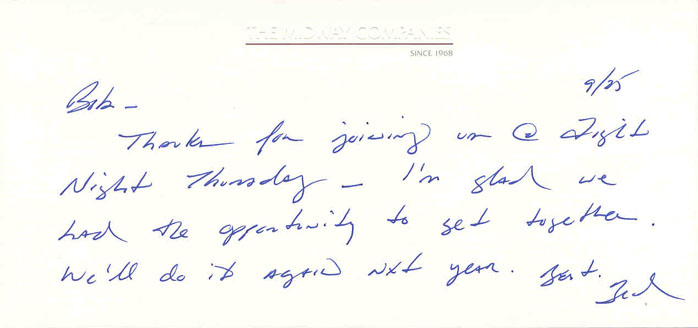 THE MIDWAY COMPANIES
SINCE 1968
9/25
Bob -
Thanks for joining us @ Fight
Night Thursday - I'm glad we
had the opportunity to get together.
We'll do it again nxt year. Best.
Brad